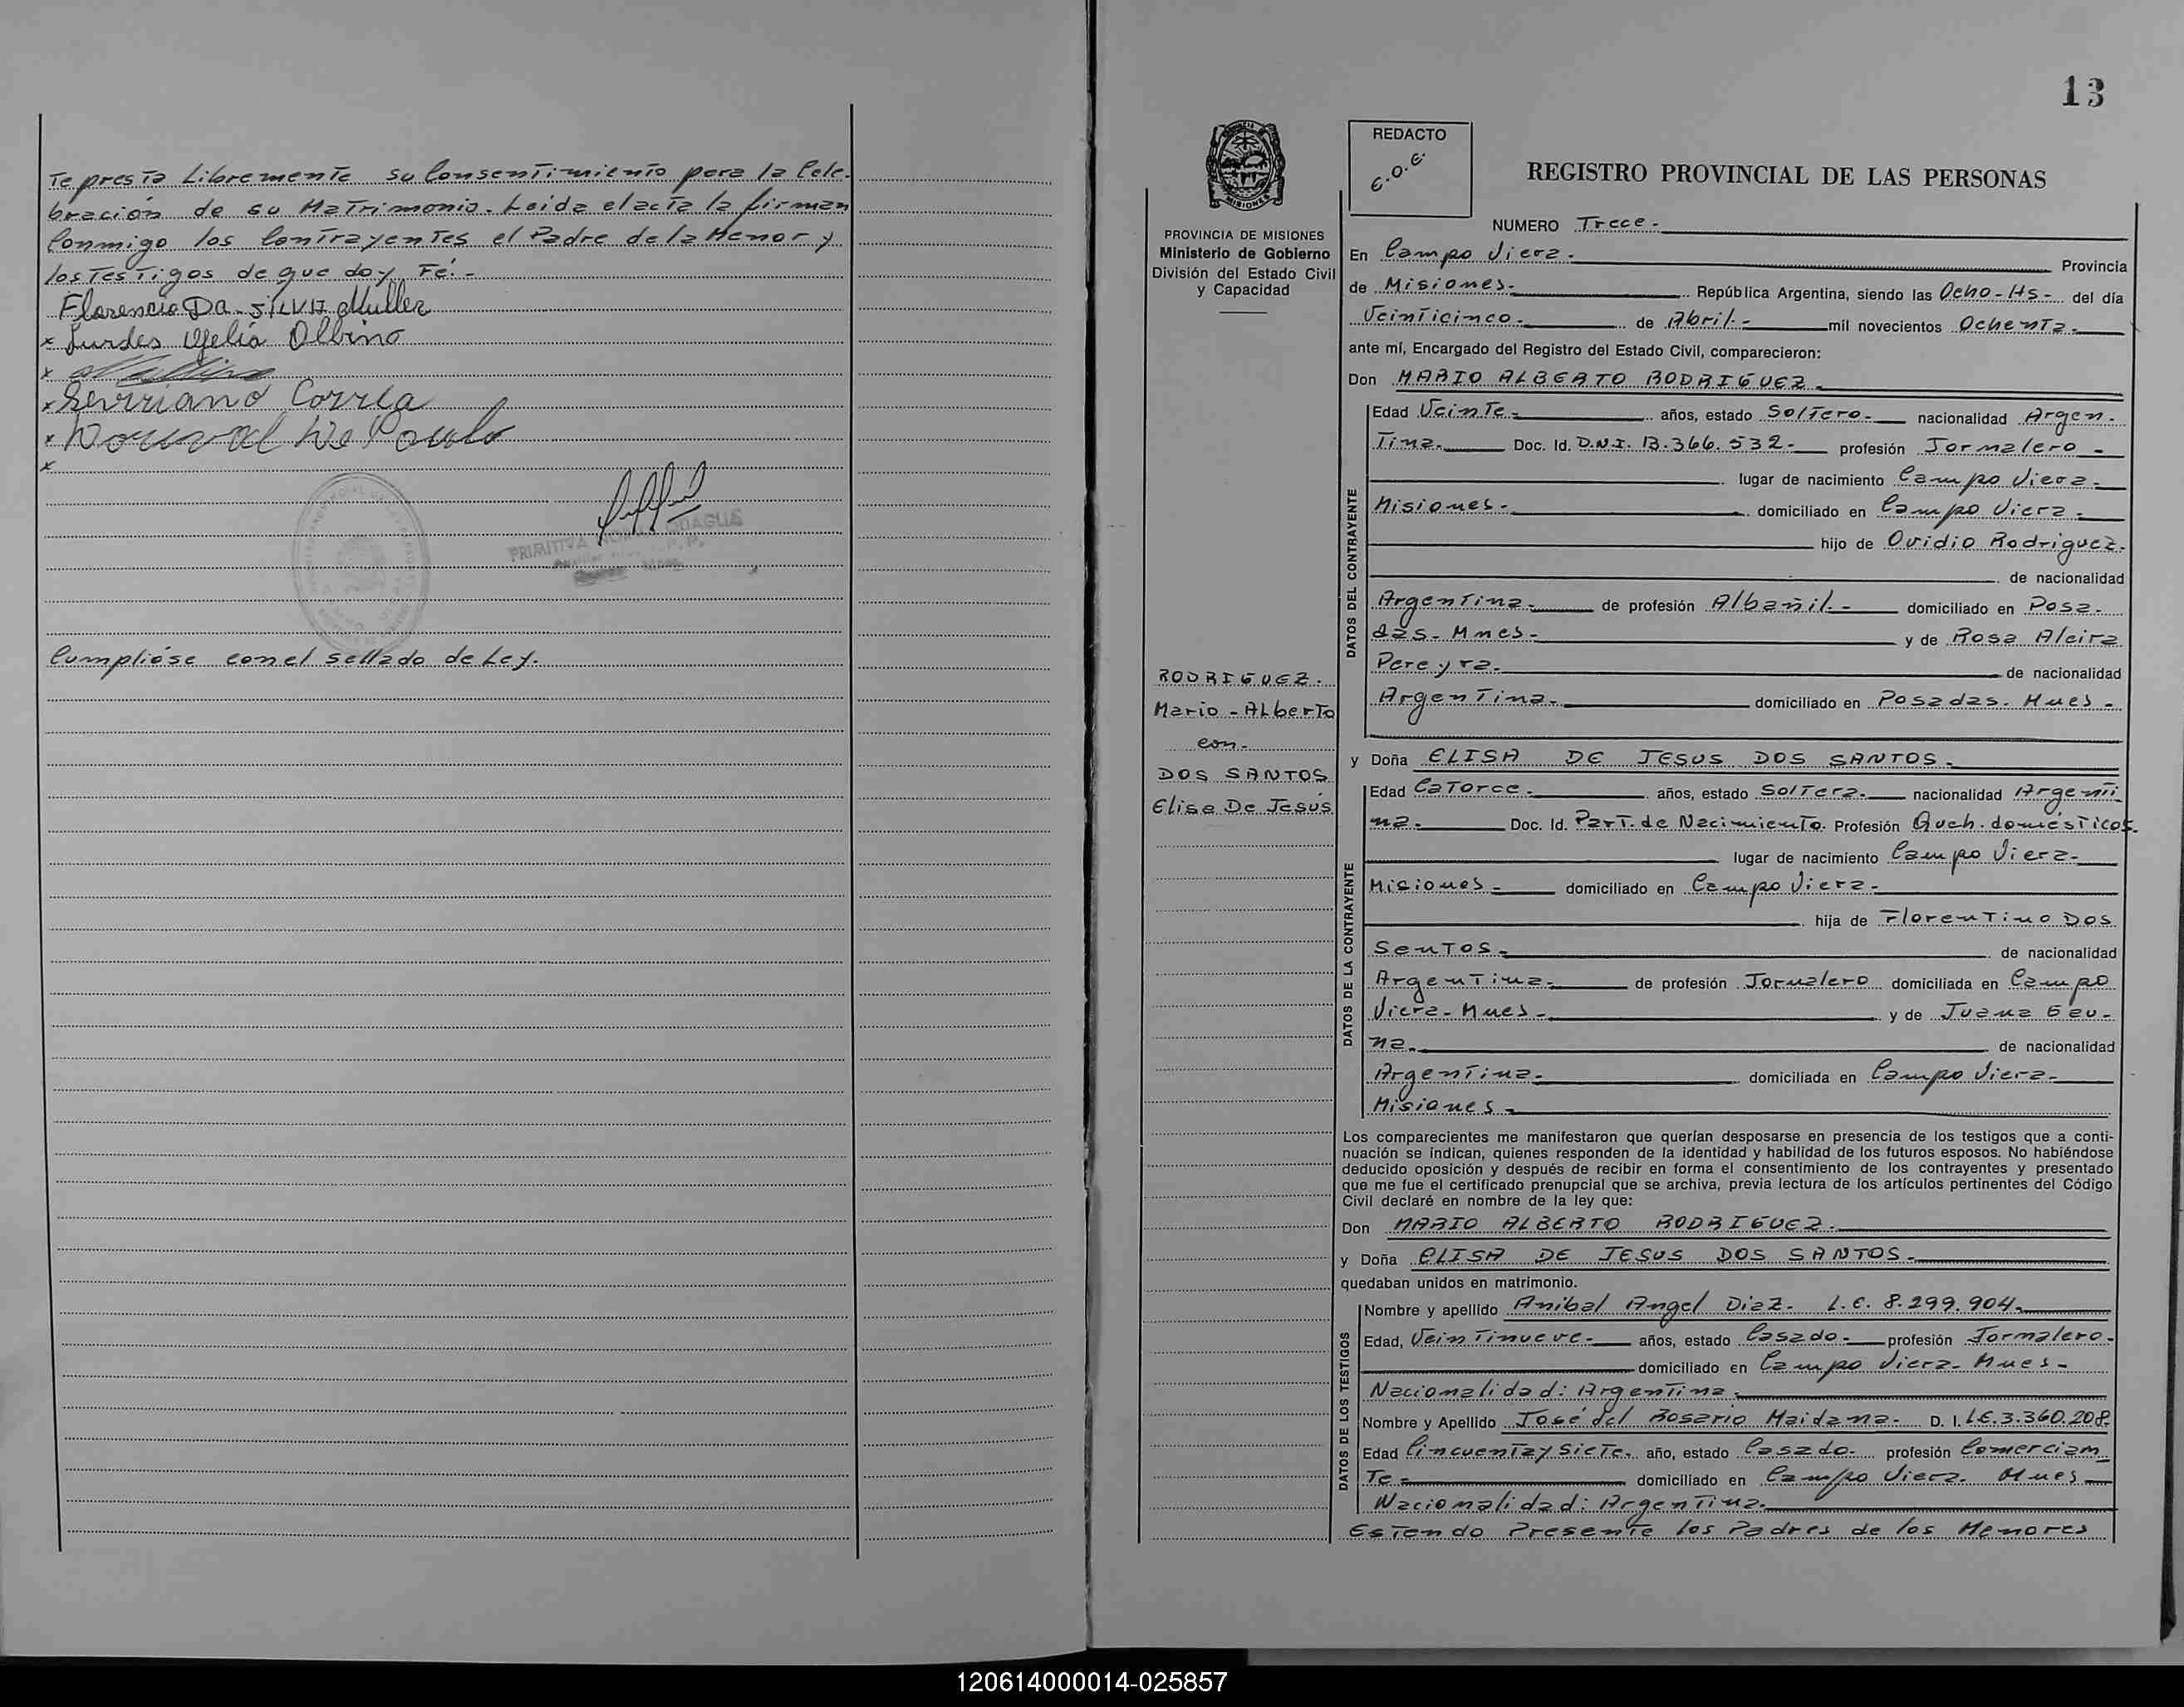 Te presta Libremente su Consentimiento para la Cele-
bración de su Matrimonio. Leida el acta la firman
Conmigo los Contrayentes el Padre de la Menor y
los Testigos de que doy Fé.-
Florencio Da SILVA Muller
x Lurdes Ofelia Olbino
x
x Serriano Correa
x Dorival De Paulo
x
PRIMITIVA
Cumplióse con el sellado de Ley.
13
REDACTO
E.O.E.
REGISTRO PROVINCIAL DE LAS PERSONAS
MISIONES
PROVINCIA DE MISIONES
Ministerio de Gobierno
División del Estado Civil
y Capacidad
RODRIGUEZ.
Mario - Alberto
con-
DOS SANTOS
Elisa De Jesús
NUMERO Trece.-
En Campo Viera.- Provincia
de Misiones.- República Argentina, siendo las Ocho-Hs- del día
Veinticinco.- de Abril.- mil novecientos Ochenta.-
ante mí, Encargado del Registro del Estado Civil, comparecieron:
Don MARIO ALBERTO RODRIGUEZ.-
DATOS DEL CONTRAYENTE
Edad Veinte.- años, estado Soltero.- nacionalidad Argen-
tina.- Doc. Id. D.N.I. 13.366.532.- profesión Jornalero-
lugar de nacimiento Campo Viera-
Misiones.- domiciliado en Campo Viera.-
hijo de Ovidio Rodriguez.
de nacionalidad
Argentina.- de profesión Albañil.- domiciliado en Posa-
das- Mnes- y de Rosa Alcira
Pereyra.- de nacionalidad
Argentina.- domiciliado en Posadas. Mnes-
y Doña ELISA DE JESUS DOS SANTOS.-
DATOS DE LA CONTRAYENTE
Edad Catorce.- años, estado Soltera.- nacionalidad Argenti
na.- Doc. Id. Part. de Nacimiento. Profesión Queh. domésticos.
lugar de nacimiento Campo Viera-
Misiones- domiciliado en Campo Viera-
hija de Florentino Dos
Santos- de nacionalidad
Argentina.- de profesión Jornalero domiciliada en Campo
Viera- Mnes- y de Juana Gau-
na.- de nacionalidad
Argentina.- domiciliada en Campo Viera-
Misiones-
Los comparecientes me manifestaron que querían desposarse en presencia de los testigos que a conti-
nuación se indican, quienes responden de la identidad y habilidad de los futuros esposos. No habiéndose
deducido oposición y después de recibir en forma el consentimiento de los contrayentes y presentado
que me fue el certificado prenupcial que se archiva, previa lectura de los artículos pertinentes del Código
Civil declaré en nombre de la ley que:
Don MARIO ALBERTO RODRIGUEZ.-
y Doña ELISA DE JESUS DOS SANTOS.-
quedaban unidos en matrimonio.
DATOS DE LOS TESTIGOS
Nombre y apellido Anibal Angel Diaz- L.E. 8.299.904.-
Edad, Veintinueve.- años, estado Casado.- profesión Jornalero-
domiciliado en Campo Viera- Mnes-
Nacionalidad: Argentina.-
Nombre y Apellido José del Rosario Maidana- D. I. L.E. 3.360.208.
Edad Cincuenta y Siete. año, estado Casado.- profesión Comercian
Te- domiciliado en Campo Viera. Mnes-
Nacionalidad: Argentina-
Estando Presente los Padres de los Menores
120614000014-025857